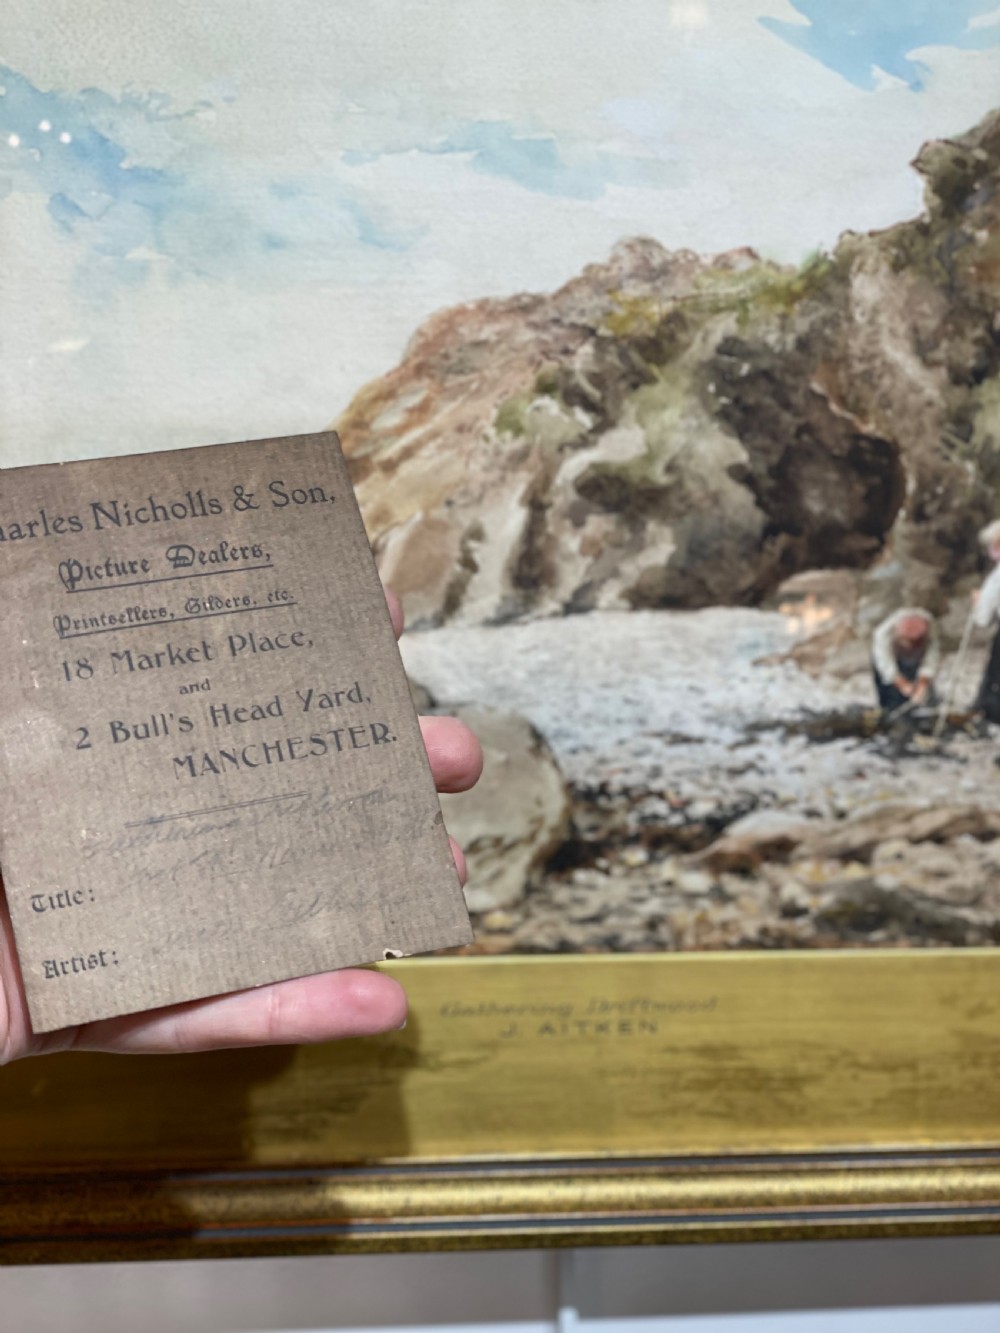 harles Nicholls & Son,
Picture Dealers,
Printsellers, Gilders, etc.
18 Market Place,
and
2 Bull's Head Yard,
MANCHESTER.
Title:
Artist:
Gathering Driftwood
J. AITKEN